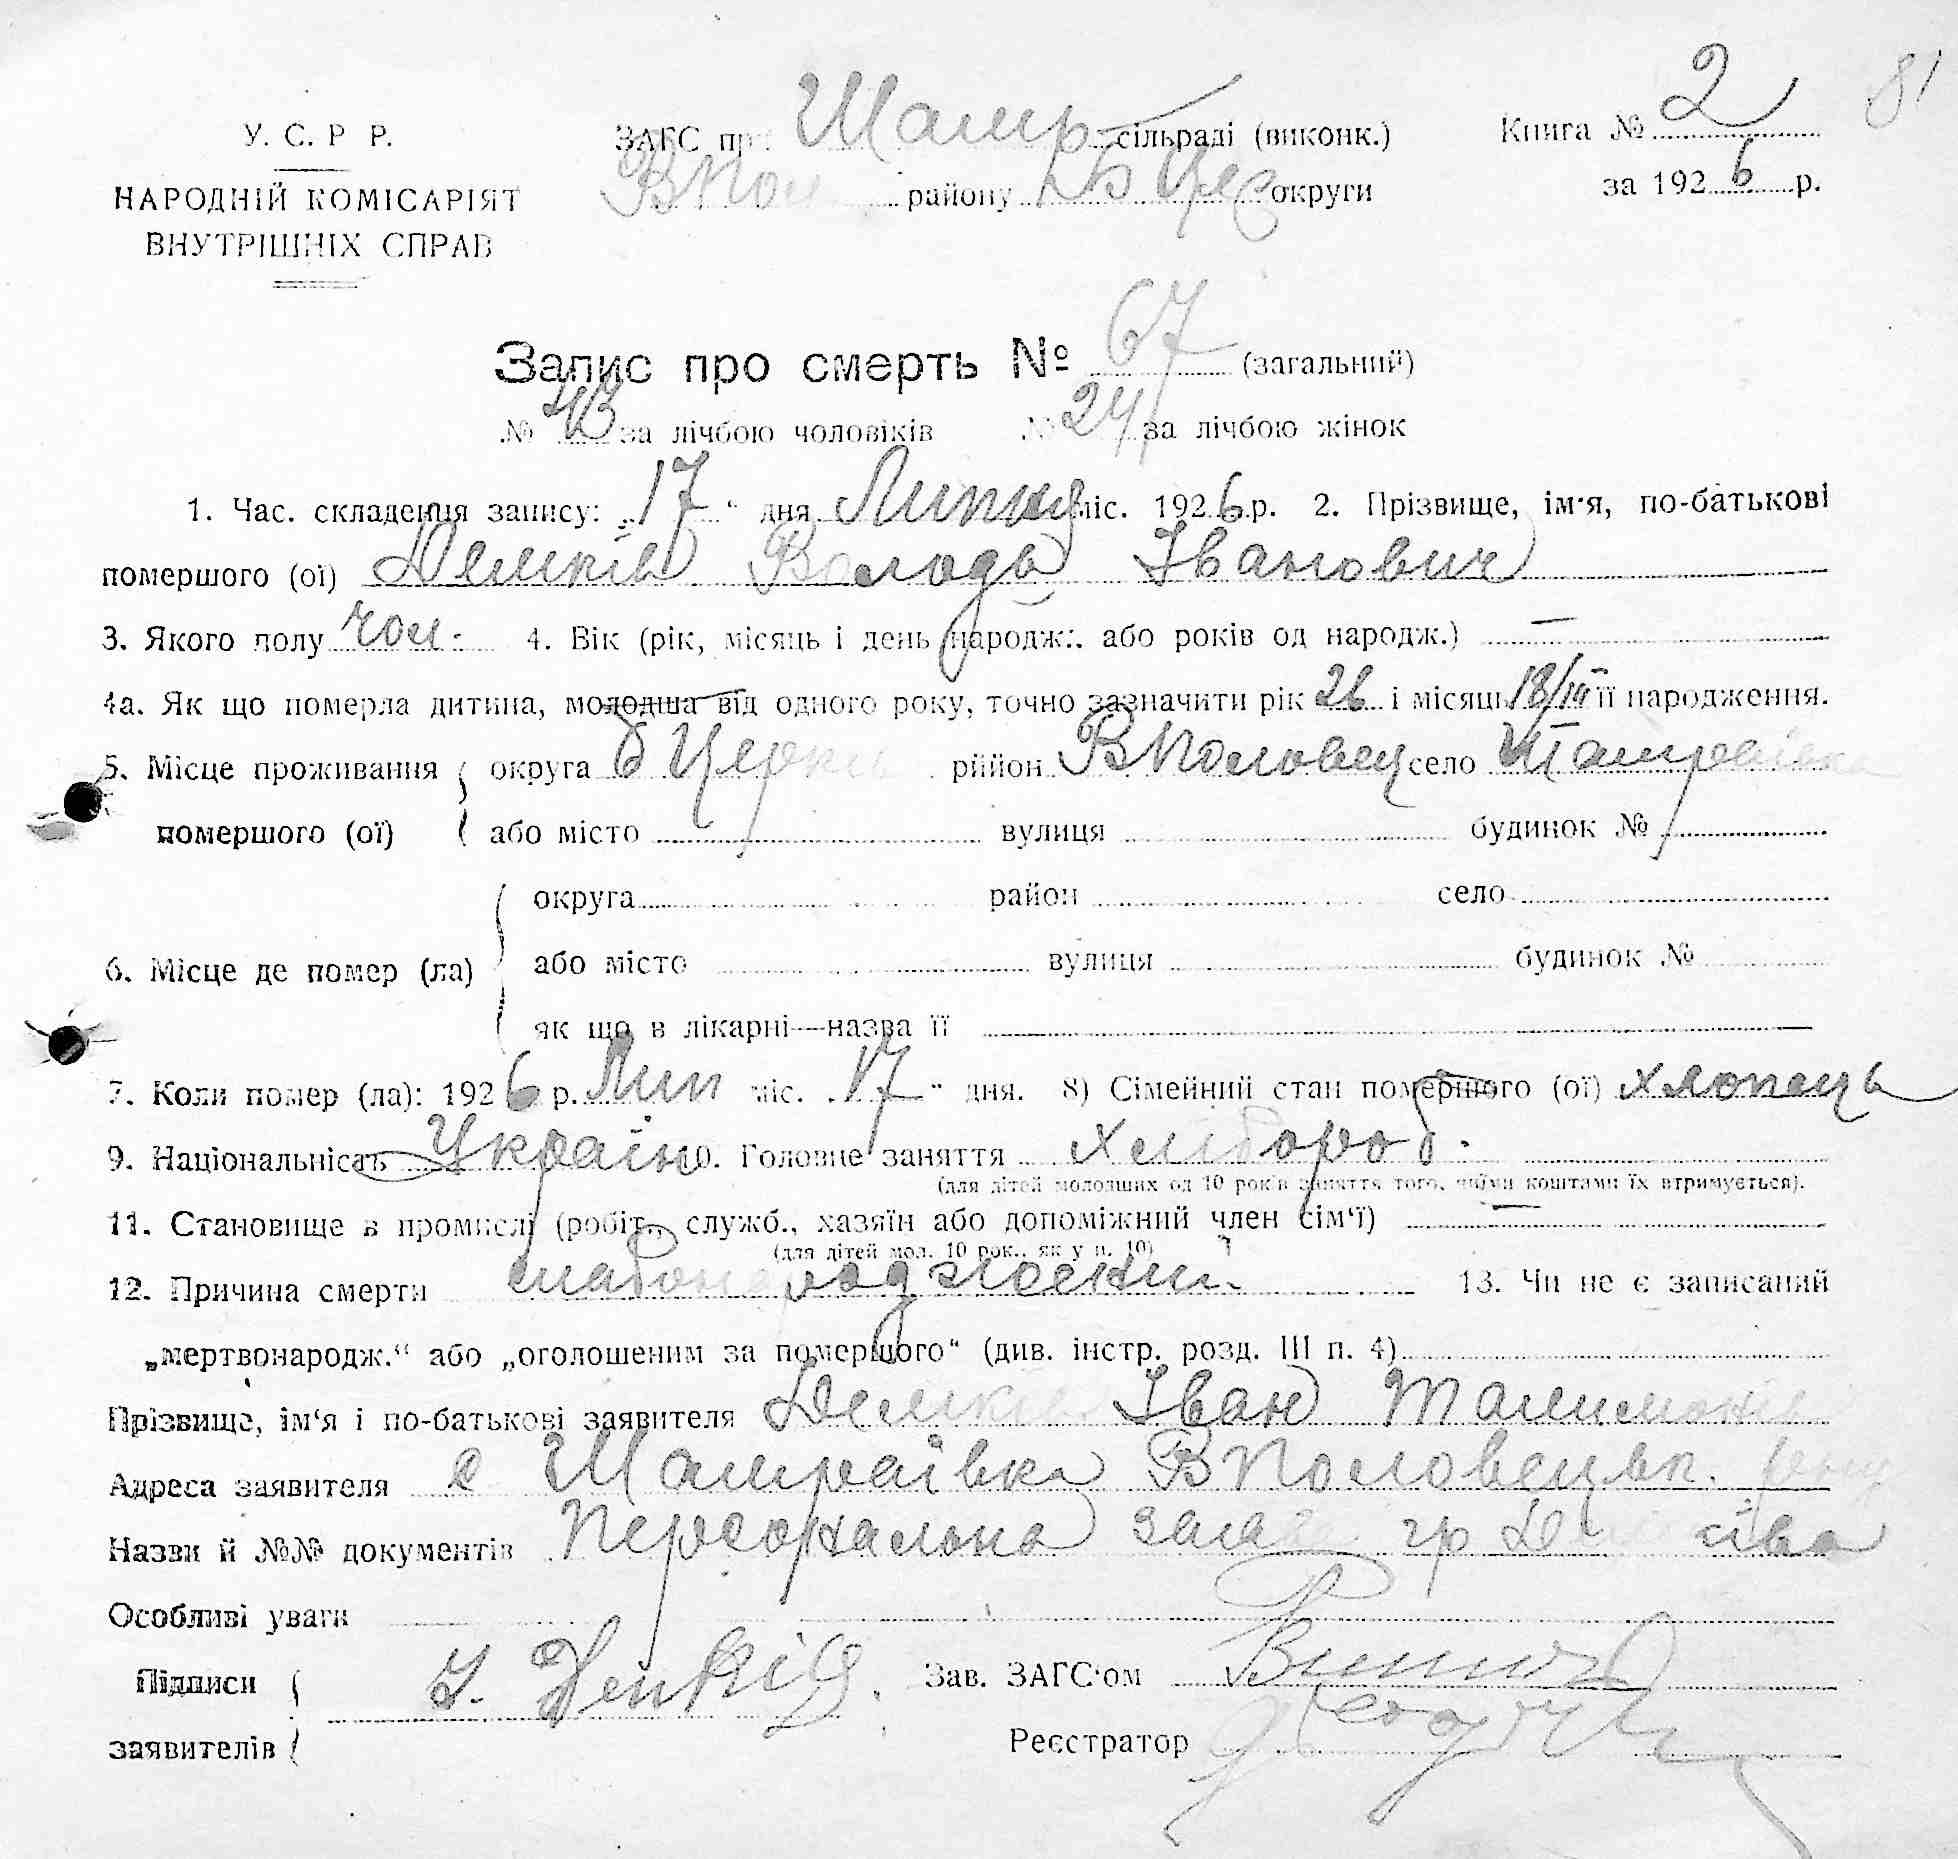 81
У. С. Р Р.
НАРОДНІЙ КОМІСАРІЯТ
ВНУТРІШНІХ СПРАВ
ЗАГС при Шамр сільраді (виконк.)
ВПол району Б Церк округи
Книга № 2
за 1926 р.
Запис про смерть № 67 (загальний)
№ 43 за лічбою чоловіків № 24 за лічбою жінок
1. Час. складення запису: „17“ дня Липня міс. 1926 р. 2. Прізвище, ім'я, по-батькові
помершого (ої) Демків Володь Іванович
3. Якого полу чол. 4. Вік (рік, місяць і день народж. або років од народж.) —
4а. Як що померла дитина, молодша від одного року, точно зазначити рік 26 і місяць 18/III її народження.
5. Місце проживання округа б Церков район ВПоловец село Шамраївка
помершого (ої) або місто вулиця будинок №
округа район село
6. Місце де помер (ла) або місто вулиця будинок №
як що в лікарні—назва її
7. Коли помер (ла): 1926 р. Лип міс. 17 " дня. 8) Сімейний стан помершого (ої) хлопець
9. Національність Україн 10. Головне заняття хлібороб.
(для дітей молодших од 10 років заняття того, чиїми коштами їх втримується).
11. Становище в промислі (робіт., служб., хазяїн або допоміжний член сім'ї) —
(для дітей мол. 10 рок., як у п. 10)
12. Причина смерти слабонароджений 13. Чи не є записаний
„мертвонародж.“ або „оголошеним за помершого“ (див. інстр. розд. III п. 4)
Прізвище, ім'я і по-батькові заявителя Демків Іван
Адреса заявителя с Шамраївка ВПоловецьк.
Назви й №№ документів Персональна заява гр
Особливі уваги
Підписи І. Демків. Зав. ЗАГС'ом
заявителів Реєстратор